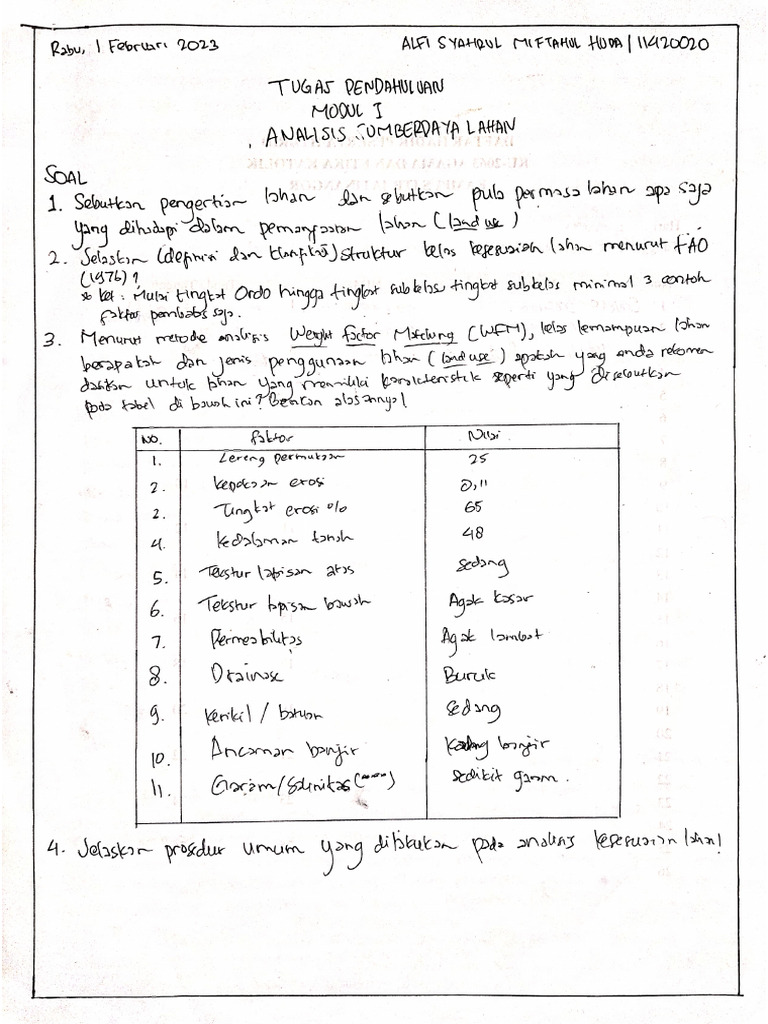 Rabu, 1 Februari 2023
ALFI SYAHRUL MIFTAHUL HUDA / 11420020
TUGAS PENDAHULUAN
MODUL I
ANALISIS SUMBERDAYA LAHAN
SOAL
1. Sebutkan pengertian lahan dan sebutkan pula permasalahan apa saja
yang dihadapi dalam pemanfaatan lahan (land use)
2. Jelaskan (definisi dan klasifikasi) struktur kelas kesesuaian lahan menurut FAO
(1976)?
* ket : Mulai tingkat Ordo hingga tingkat subkelas, tingkat subkelas minimal 3 contoh
faktor pembatas saja.
3. Menurut metode analisis Weight Factor Matching (WFM), kelas kemampuan lahan
berapakah dan jenis penggunaan lahan (land use) apakah yang anda rekomen
dasikan untuk lahan yang memiliki karakteristik seperti yang disebutkan
pada tabel di bawah ini? Berikan alasannya!
NO. Faktor Nilai
1. Lereng permukaan 25
2. Kepekaan erosi 0,11
2. Tingkat erosi % 65
4. Kedalaman tanah 48
5. Tekstur lapisan atas sedang
6. Tekstur lapisan bawah Agak kasar
7. Permeabilitas Agak lambat
8. Drainase Buruk
9. Kerikil / batuan sedang
10. Ancaman banjir Kadang banjir
11. Garam/Salinitas sedikit garam.
4. Jelaskan prosedur umum yang dilakukan pada analisis kesesuaian lahan!